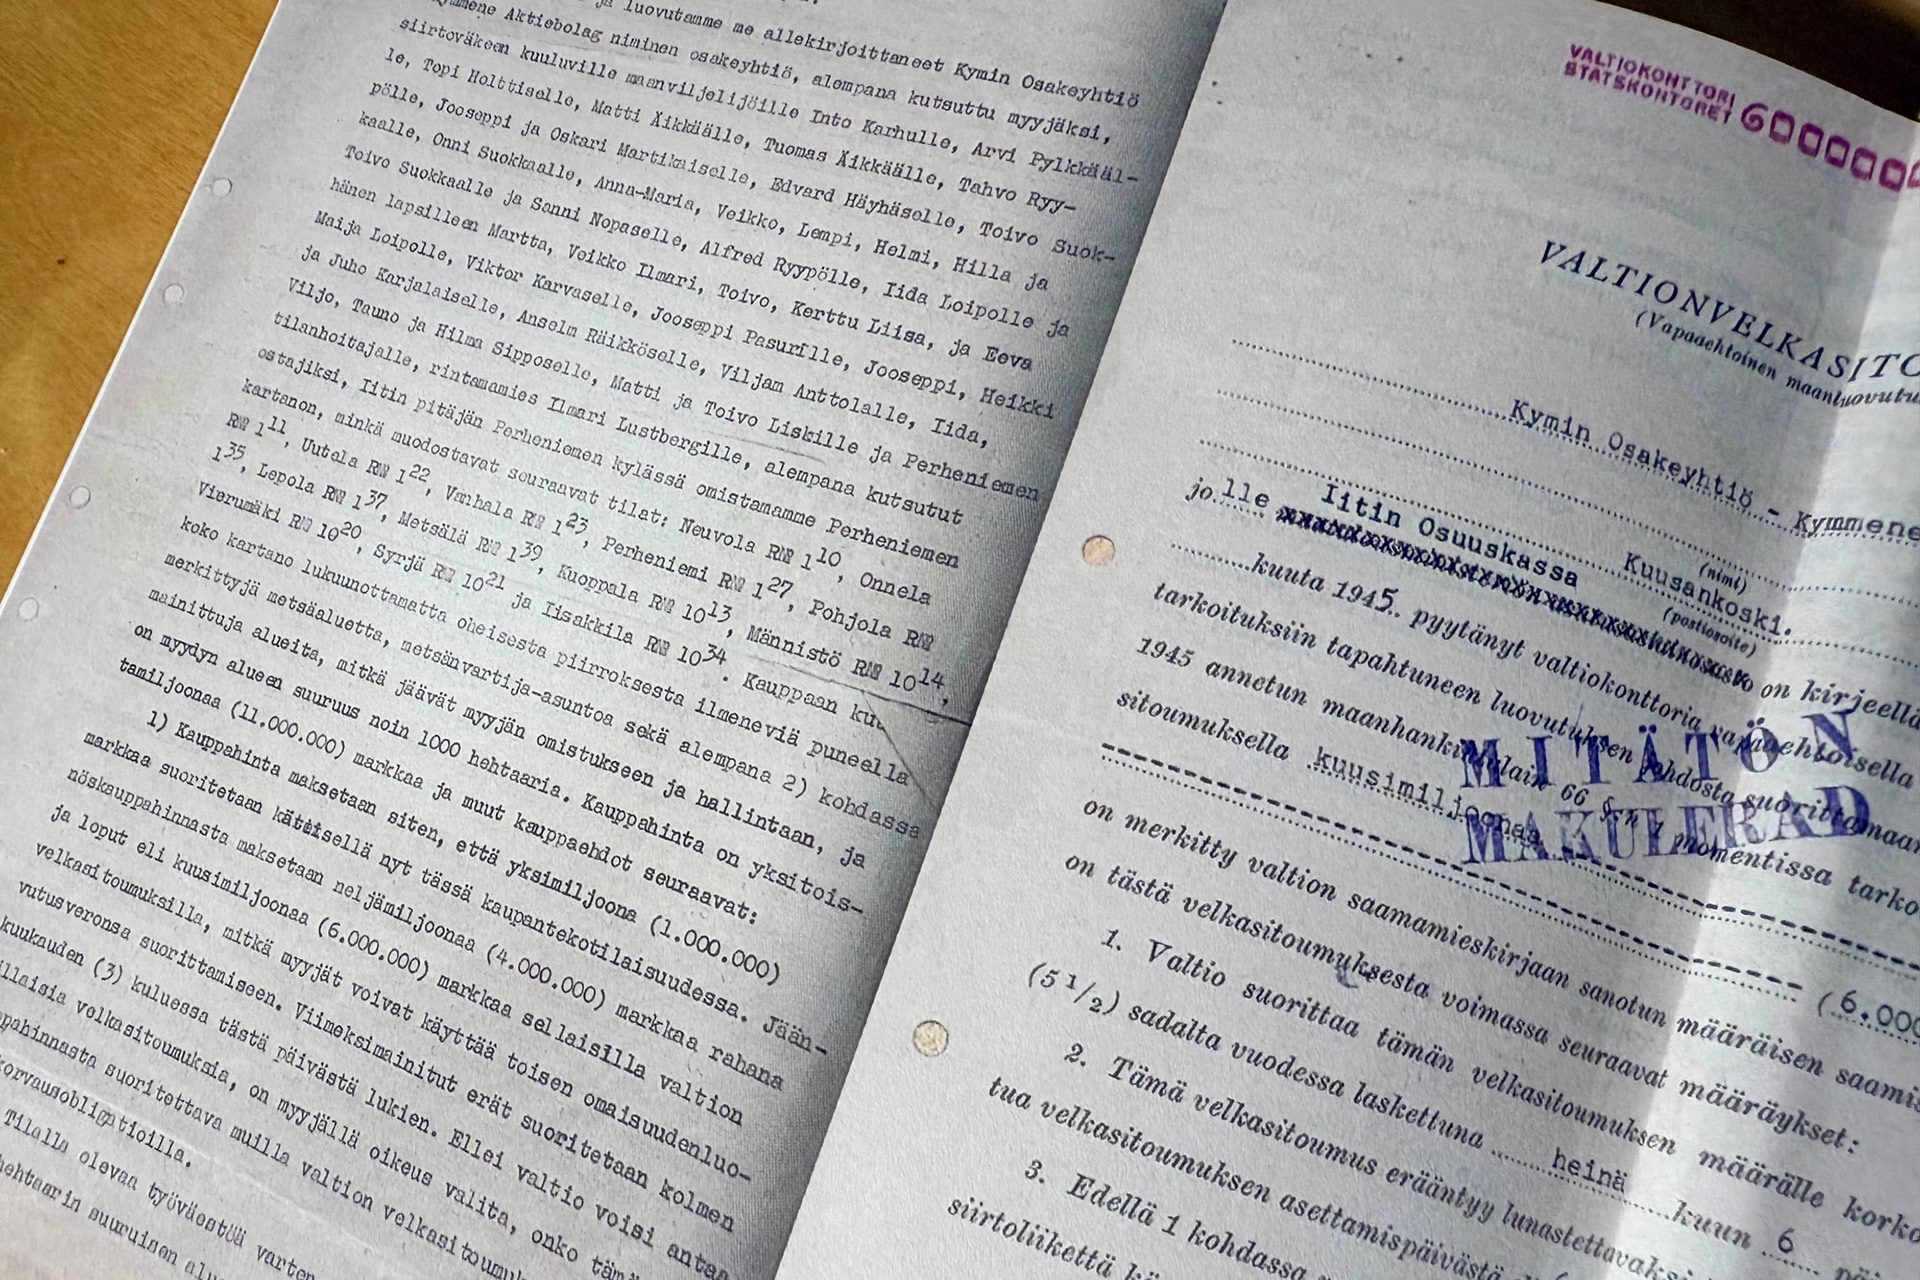 ja luovutamme me allekirjoittaneet Kymin Osakeyhtiö
Kymmene Aktiebolag niminen osakeyhtiö, alempana kutsuttu myyjäksi,
siirtoväkeen kuuluville maanviljelijöille Into Karhulle, Arvi Pylkkääl-
le, Topi Holttiselle, Matti Äikkäälle, Tuomas Äikkäälle, Tahvo Ryy-
pölle, Jooseppi ja Oskari Martikaiselle, Edvard Häyhäselle, Toivo Suok-
kaalle, Onni Suokkaalle, Anna-Maria, Veikko, Lempi, Helmi, Hilla ja
Toivo Suokkaalle ja Sanni Nopaselle, Alfred Ryypölle, Iida Loipolle ja
hänen lapsilleen Martta, Veikko Ilmari, Toivo, Kerttu Liisa, ja Eeva
Maija Loipolle, Viktor Karvaselle, Jooseppi Pasurille, Jooseppi, Heikki
ja Juho Karjalaiselle, Anselm Räikköselle, Viljam Anttolalle, Iida,
Viljo, Tauno ja Hilma Sipposelle, Matti ja Toivo Liskille ja Perheniemen
tilanhoitajalle, rintamamies Ilmari Lustbergille, alempana kutsutut
ostajiksi, Iitin pitäjän Perheniemen kylässä omistamamme Perheniemen
kartanon, minkä muodostavat seuraavat tilat: Neuvola RN:o 1¹⁰, Onnela
RN:o 1¹¹, Uutela RN:o 1²², Vanhala RN:o 1²³, Perheniemi RN:o 1²⁷, Pohjola RN:o
1³⁵, Lepola RN:o 1³⁷, Metsälä RN:o 1³⁹, Kuoppala RN:o 10¹³, Männistö RN:o 10¹⁴,
Vierumäki RN:o 10²⁰, Syrjä RN:o 10²¹ ja Iisakkila RN:o 10³⁴. Kauppaan
koko kartano lukuunottamatta oheisesta piirroksesta ilmeneviä puneella
merkittyjä metsäaluetta, metsänvartija-asuntoa sekä alempana 2) kohdassa
mainittuja alueita, mitkä jäävät myyjän omistukseen ja hallintaan, ja
on myydyn alueen suuruus noin 1000 hehtaaria. Kauppahinta on yksitois-
tamiljoonaa (11.000.000) markkaa ja muut kauppaehdot seuraavat:
1) Kauppahinta maksetaan siten, että yksimiljoona (1.000.000)
markkaa suoritetaan käteisellä nyt tässä kaupantekotilaisuudessa. Jään-
nöskauppahinnasta maksetaan neljämiljoonaa (4.000.000) markkaa rahana
ja loput eli kuusimiljoonaa (6.000.000) markkaa sellaisilla valtion
velkasitoumuksilla, mitkä myyjät voivat käyttää toisen omaisuudenluo-
vutusveronsa suorittamiseen. Viimeksimainitut erät suoritetaan kolmen
kuukauden (3) kuluessa tästä päivästä lukien. Ellei valtio voisi antaa
velkasitoumuksia, on myyjällä oikeus valita, onko
suoritettava muilla valtion
korvausobligatioilla.
Tilalla olevaa työväestöä varten
hehtaarin suuruisen
VALTIOKONTTORI
STATSKONTORET 6000000
VALTIONVELKASITO
(Vapaaehtoinen maanluovutu
Kymin Osakeyhtiö - Kymmene
(nimi)
jolle Iitin Osuuskassa Kuusankoski.
(postiosoite)
on kirjeellä
kuuta 1945 pyytänyt valtiokonttoria vapaaehtoisella
tarkoituksiin tapahtuneen luovutuksen johdosta suorittamaan
1945 annetun maanhankintalain 66 §:n 1 momentissa tarko
sitoumuksella kuusimiljoonaa
MITÄTÖN
MAKULERAD
(6.000
on merkitty valtion saamamieskirjaan sanotun määräisen saamis
on tästä velkasitoumuksesta voimassa seuraavat määräykset:
1. Valtio suorittaa tämän velkasitoumuksen määrälle korko
(5 1/2) sadalta vuodessa laskettuna heinä kuun 6
2. Tämä velkasitoumus erääntyy lunastettavaks
tua velkasitoumuksen asettamispäivästä
3. Edellä 1 kohdassa
siirtoliikettä